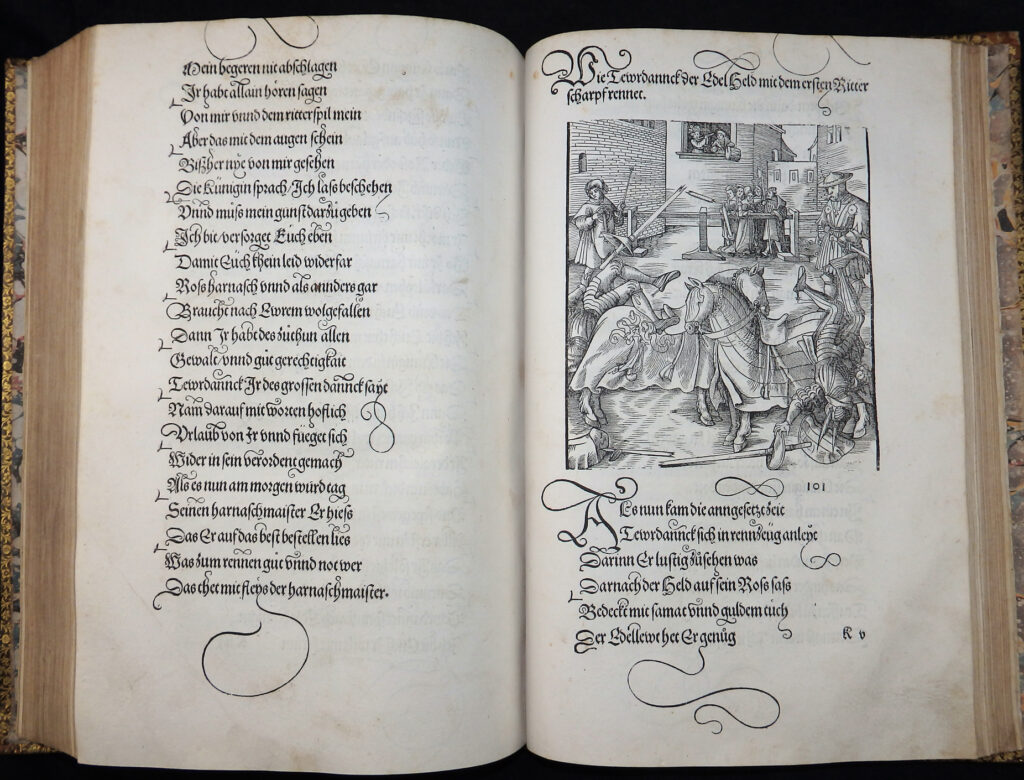 Mein begeren nit abschlagen
Ir habt allain hören sagen
Von mir vnnd dem ritterspil mein
Aber das mit dem augen schein
Bißher nye von mir gesehen
Die Künigin sprach / Ich lass beschehen
Vnnd muss mein gunst darzů geben
Ich bit / versorget Euch eben
Damit Euch khein leid widerfar
Ross harnasch vnnd als annders gar
Braucht nach Ewrem wolgefallen
Dann Ir habt des zůthun allen
Gewalt / vnnd gůt gerechtigkait
Tewrdannck Ir des grossen dannck sayt
Nam darauf mit worten hoflich
Vrlaub von Ir vnnd füeget sich
Wider in sein verordent gemach
Als es nun am morgen wurd tag
Seinen harnaschmaister Er hiess
Das Er auf das best bestellen lies
Was zum rennen gůt vnnd not wer
Das thet mit fleys der harnaschmaister.
Wie Tewrdannck der Edel Held mit dem ersten Ritter
scharpf rennet.
101
Als nun kam die anngesetzt zeit
Tewrdannck sich in rennzeüg anleyt
Darinn Er lustig zůsehen was
Darnach der Held auf sein Ross sass
Bedeckt mit samat vnnd guldem tůch
Der Edellewt het Er genůg
K v